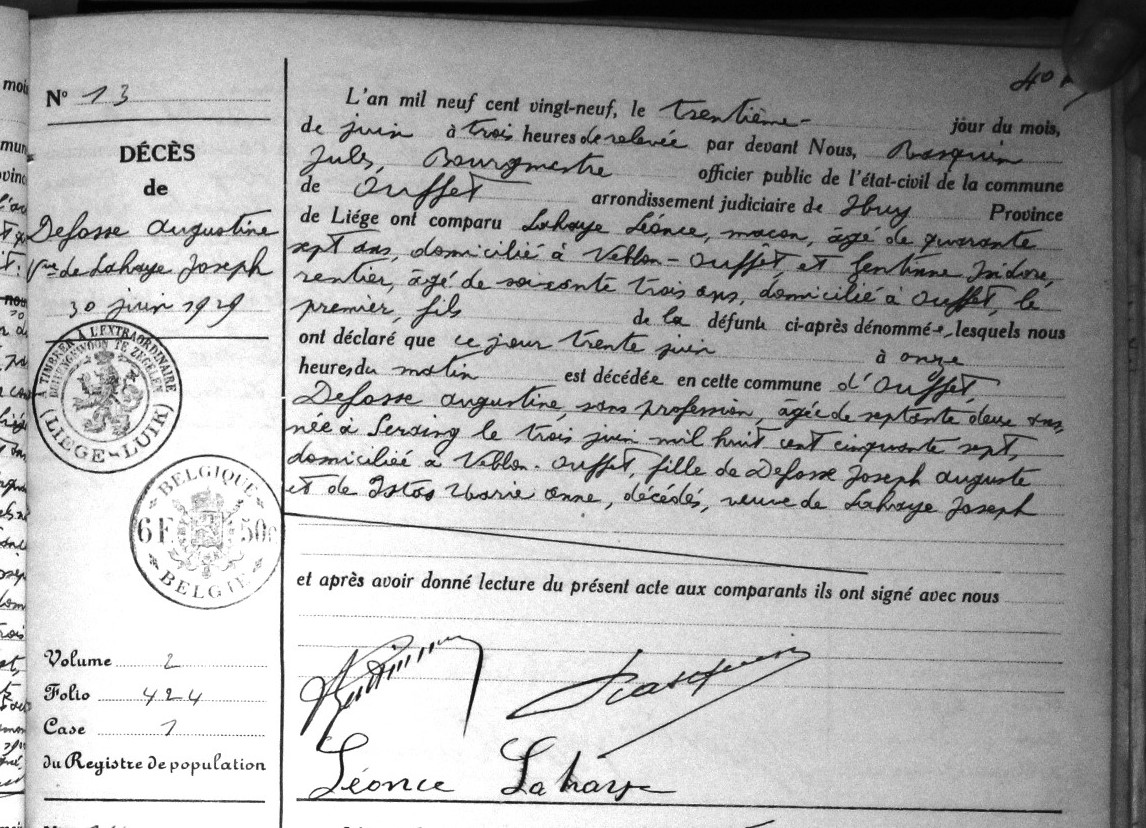 40
N° 13
DÉCÈS
de
Defosse Augustine
Vve de Lahaye Joseph
30 juin 1929
A TIMBRER A L'EXTRAORDINAIRE
BUITENGEWOON TE ZEGELEN
(LIEGE-LUIK)
BELGIQUE
6 F. 50c
BELGIË
Volume 2
Folio 424
Case 1
du Registre de population
L'an mil neuf cent vingt-neuf, le trentième jour du mois,
de juin à trois heures de relevée par devant Nous, Rasquin
Jules, Bourgmestre officier public de l'état-civil de la commune
de Ouffet arrondissement judiciaire de Huy Province
de Liége ont comparu Lahaye Léonce, maçon, âgé de quarante
sept ans, domicilié à Veblon-Ouffet, et Gentinne Isidore,
rentier, âgé de soixante trois ans, domicilié à Ouffet, le
premier, fils de la défunte ci-après dénommée, lesquels nous
ont déclaré que ce jour trente juin à onze
heures du matin est décédée en cette commune d'Ouffet,
Defosse Augustine, sans profession, âgée de septante deux ans,
née à Seraing le trois juin mil huit cent cinquante sept,
domiciliée à Veblon-Ouffet, fille de Defosse Joseph Auguste
et de Istas Marie Anne, décédés, veuve de Lahaye Joseph
et après avoir donné lecture du présent acte aux comparants ils ont signé avec nous
Rasquin
Léonce Lahaye